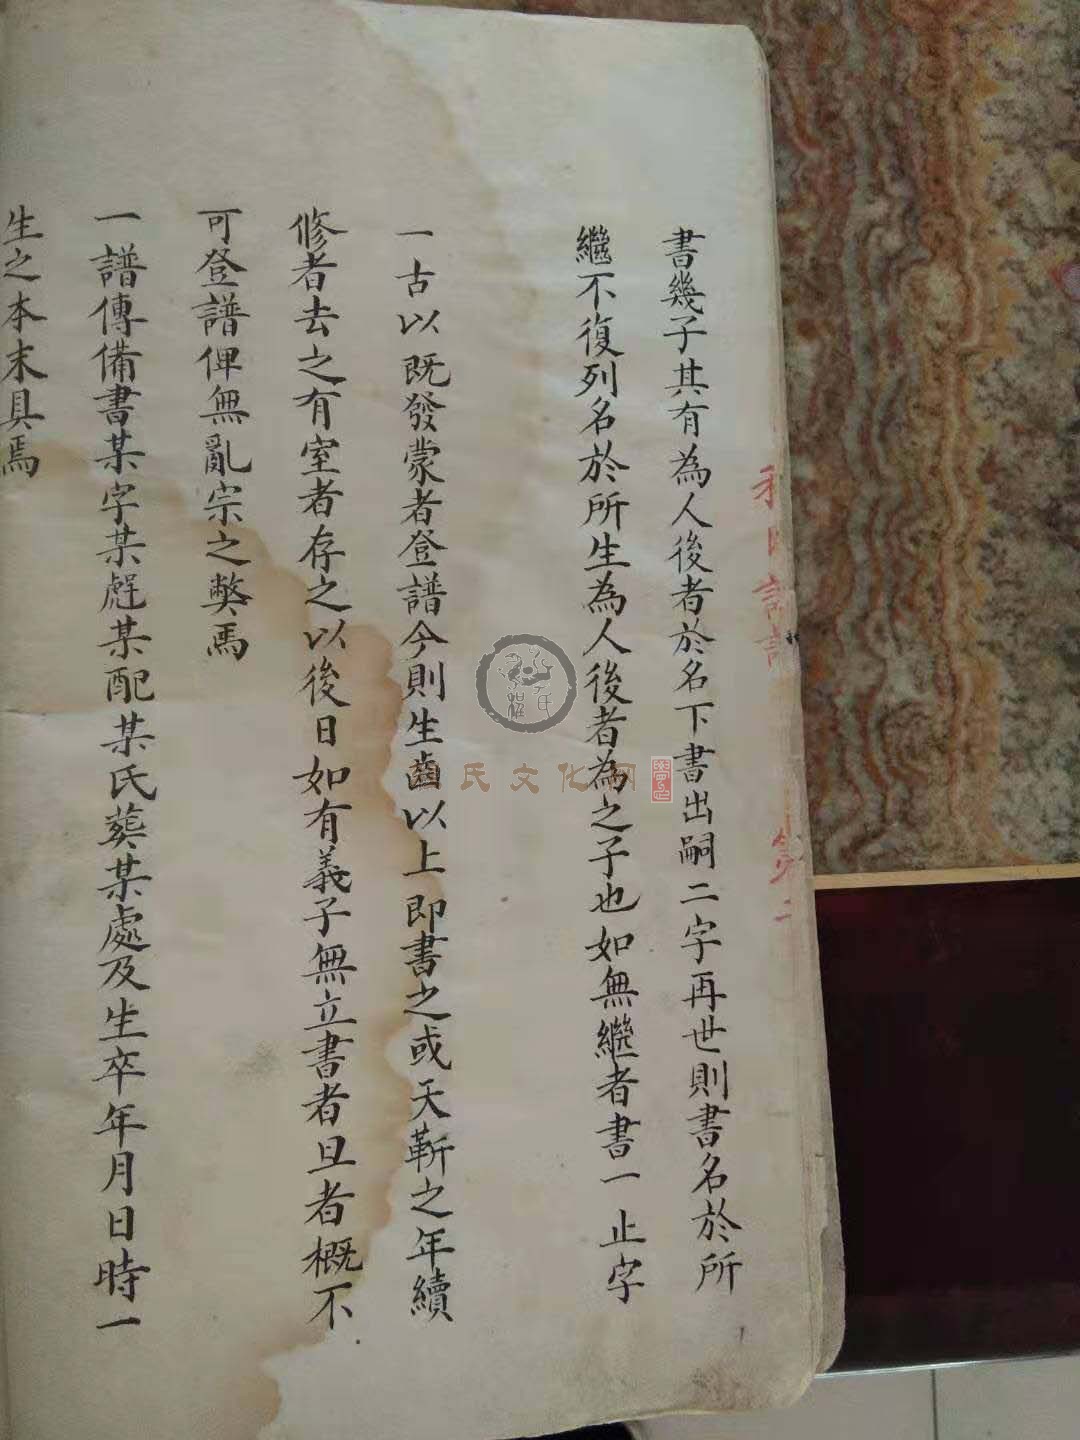 書幾子其有為人後者於名下書出嗣二字再世則書名於所
繼不復列名於所生為人後者為之子也如無繼者書一止字
一古以既發蒙者登譜今則生齒以上即書之或天靳之年續
修者去之有室者存之以後日如有義子無立書者旦者概不
可登譜俾無亂宗之獘焉
一譜傳備書某字某𧇖某配某氏葬某處及生卒年月日時一
生之本末具焉
氏文化网